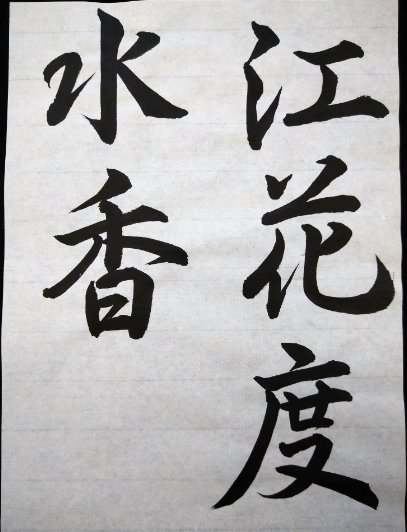 江花度
水香